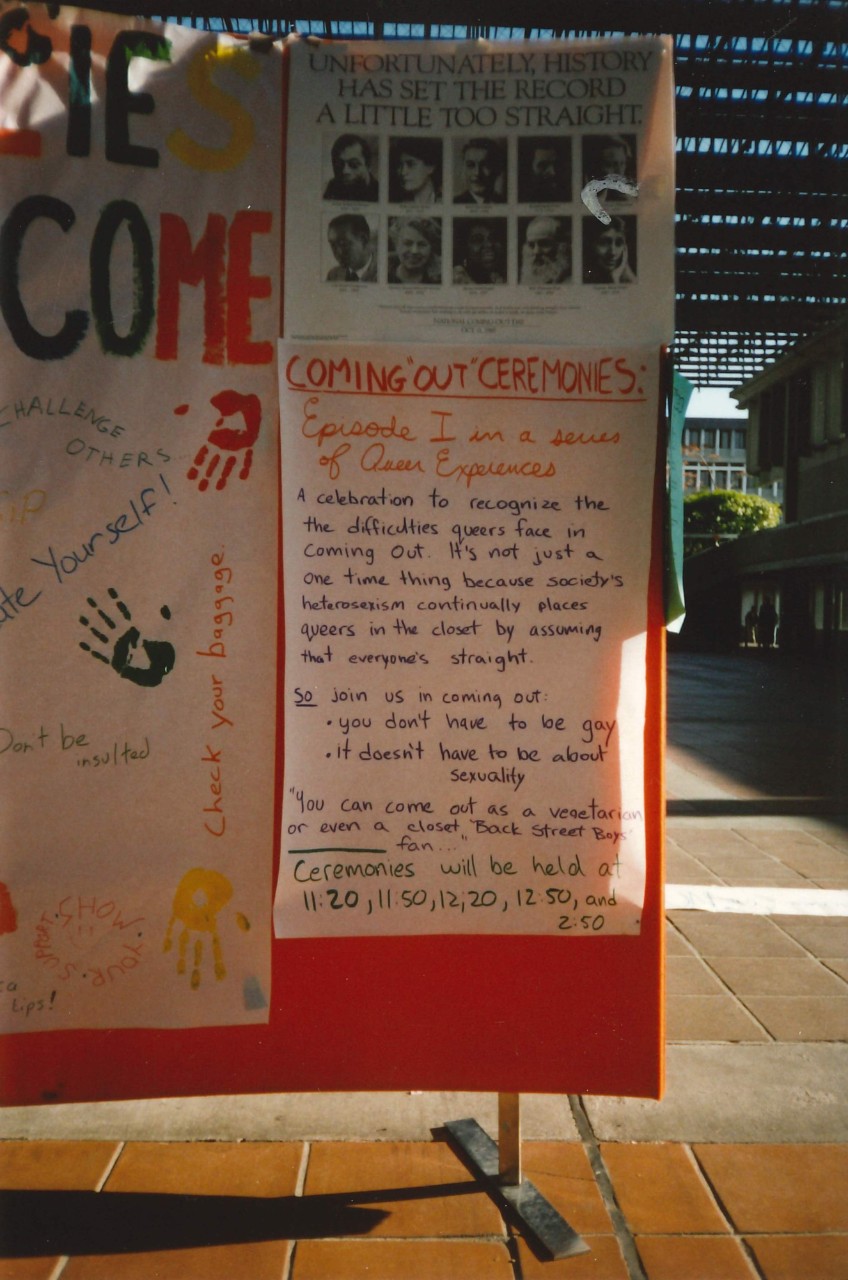 IES
COME
CHALLENGE
OTHERS
Yourself!
Check your baggage.
Don't be
insulted
SHOW YOUR SUPPORT
tips!
UNFORTUNATELY, HISTORY
HAS SET THE RECORD
A LITTLE TOO STRAIGHT.
NATIONAL COMING OUT DAY
COMING "OUT" CEREMONIES:
Episode I in a series
of Queer Experiences
A celebration to recognize the
the difficulties queers face in
Coming Out. It's not just a
one time thing because society's
heterosexism continually places
queers in the closet by assuming
that everyone's straight.
So join us in coming out:
• you don't have to be gay
• it doesn't have to be about
sexuality
"You can come out as a vegetarian
or even a closet "Back Street Boys"
fan..."
Ceremonies will be held at
11:20, 11:50, 12:20, 12:50, and
2:50